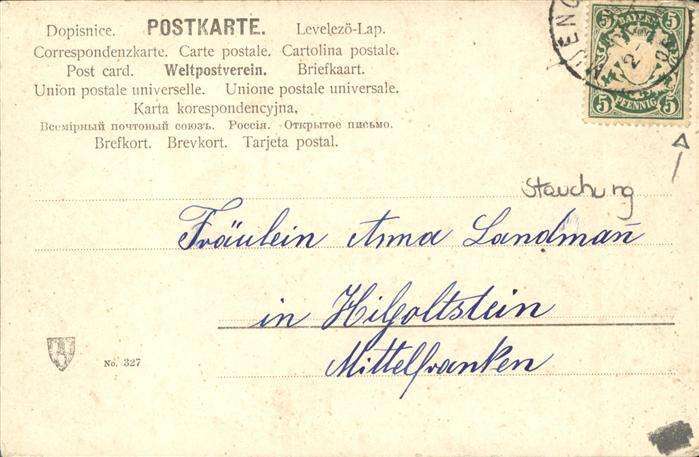 Dopisnice. POSTKARTE. Levelező-Lap.
Correspondenzkarte. Carte postale. Cartolina postale.
Post card. Weltpostverein. Briefkaart.
Union postale universelle. Unione postale universale.
Karta korespondencyjna.
Всемірный почтовый союзъ. Россія. Открытое письмо.
Brefkort. Brevkort. Tarjeta postal.
5 BAYERN 5
5 PFENNIG 5
Stauchung
Fräulein Anna Landman̄
in Hilpoltstein
Mittelfranken
No. 327